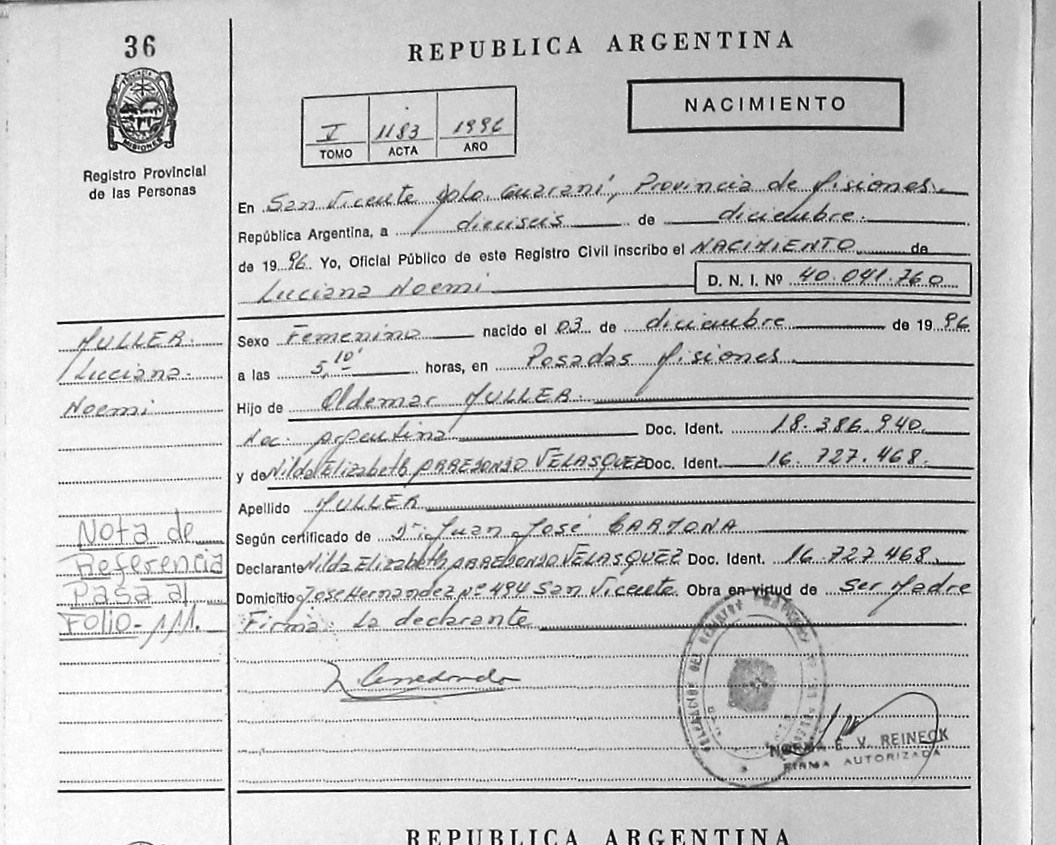 36
REPUBLICA ARGENTINA
NACIMIENTO
I 1183 1996
TOMO ACTA AÑO
MISIONES
Registro Provincial
de las Personas
En San Vicente Dpto. Guaraní, Provincia de Misiones.
República Argentina, a dieciseis de diciembre.
de 1996. Yo, Oficial Público de este Registro Civil inscribo el NACIMIENTO de
Luciana Noemi D. N. I. Nº 40.041.760
MULLER.
Luciana.
Noemi
Sexo Femenino nacido el 03 de diciembre de 1996
a las 5,10' horas, en Posadas Misiones.
Hijo de Oldemar MULLER.
Nac. Argentina Doc. Ident. 18.386.940.
y de Nilda Elizabeth ARREDONDO VELASQUEZ Doc. Ident. 16.727.468.
Apellido MULLER
Según certificado de Dr. Juan José CARMONA
Declarante Nilda Elizabeth ARREDONDO VELASQUEZ Doc. Ident. 16.727.468.
Domicilio Jose Hernandez nº 494 San Vicente. Obra en virtud de Ser Madre
Firma: La declarante
Nota de
Referencia
Pasa al
Folio-111.
Arredondo
NORMA E. V. REINECK
FIRMA AUTORIZADA
REPUBLICA ARGENTINA